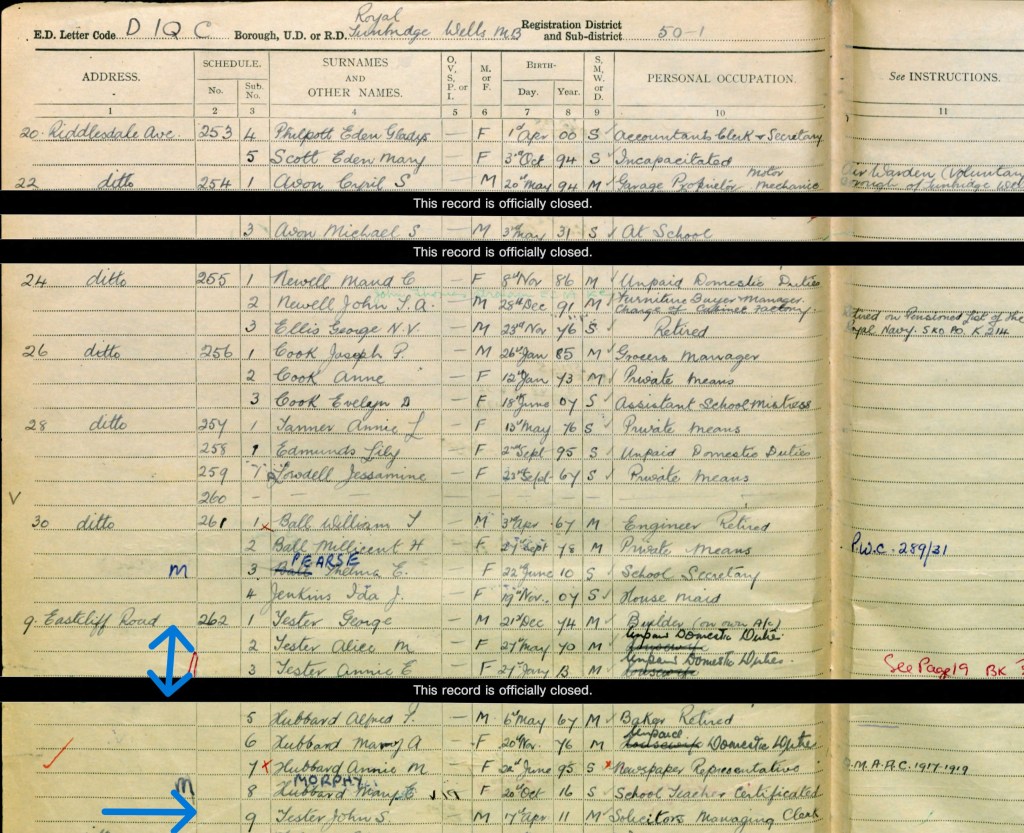 E.D. Letter Code D I Q C Borough, U.D. or R.D. Royal Tunbridge Wells M.B Registration District and Sub-district 50-1
ADDRESS. SCHEDULE. No. Sub. No. SURNAMES AND OTHER NAMES. O, V, S, P. or I. M. or F. BIRTH- Day. Year. S, M, W, or D. PERSONAL OCCUPATION. See INSTRUCTIONS.
1 2 3 4 5 6 7 8 9 10 11
20 Riddlesdale Ave. 253 4 Philpott Eden Gladys — F 1st Apr 00 S Accountants Clerk & Secretary
5 Scott Eden Mary — F 3rd Oct 94 S Incapacitated
22 ditto 254 1 Avon Cyril S — M 20th May 94 M Garage Proprietor Motor Mechanic Warden (Voluntary
This record is officially closed.
3 Avon Michael S — M 3rd May 31 S At School
This record is officially closed.
24 ditto 255 1 Newell Maud C — F 8th Nov 86 M Unpaid Domestic Duties
2 Newell John T.A. M 28th Dec 91 M Furniture Buyer & Manager. Charge of Cabinet Factory.
3 Ellis George N.V. — M 23rd Nov 76 S Retired Pensioned Royal Navy. K 214
26 ditto 256 1 Cook Joseph P. M 26th Jan 85 M Grocers Manager
2 Cook Anne — F 12th Jan 73 M Private Means
3 Cook Evelyn D — F 18th June 07 S Assistant School Mistress
28 ditto 257 1 Tanner Annie L — F 13th May 76 S Private Means
258 1 Edmunds Lily — F 2nd Sept 95 S Unpaid Domestic Duties
259 1 Lowdell Jessamine F 23rd Sept 67 S Private Means
V 260 —
30 ditto 261 1 x Ball William T — M 3rd Apr 67 M Engineer Retired
2 Ball Millicent H F 27th Sept 78 M Private Means P.W.C. 289/31
m 3 Ball PEARSE Thelma E. F 22nd June 10 S School Secretary
4 Jenkins Ida J. F 19th Nov. 07 S House Maid
9 Eastcliff Road 262 1 Tester George — M 21st Dec 74 M Builder (on own A/c)
2 Tester Alice M — F 27th May 70 M Housewife Unpaid Domestic Duties.
3 Tester Annie E F 27th Jany 13 M Housewife Unpaid Domestic Duties. See Page 19 BK
This record is officially closed.
5 Hubbard Alfred — M 6th May 67 M Baker Retired
6 Hubbard Mary A F 20th Nov. 76 M Unpaid Housewife Domestic Duties
7 x Hubbard Annie M — F 22nd June 95 S x Newspaper Representative 1917-1919
m 8 Hubbard MORPHY Mary E F 20th Oct 16 S School Teacher Certificated
9 Tester John S. M 17th Apr 11 M Solicitors Managing Clerk
ditto